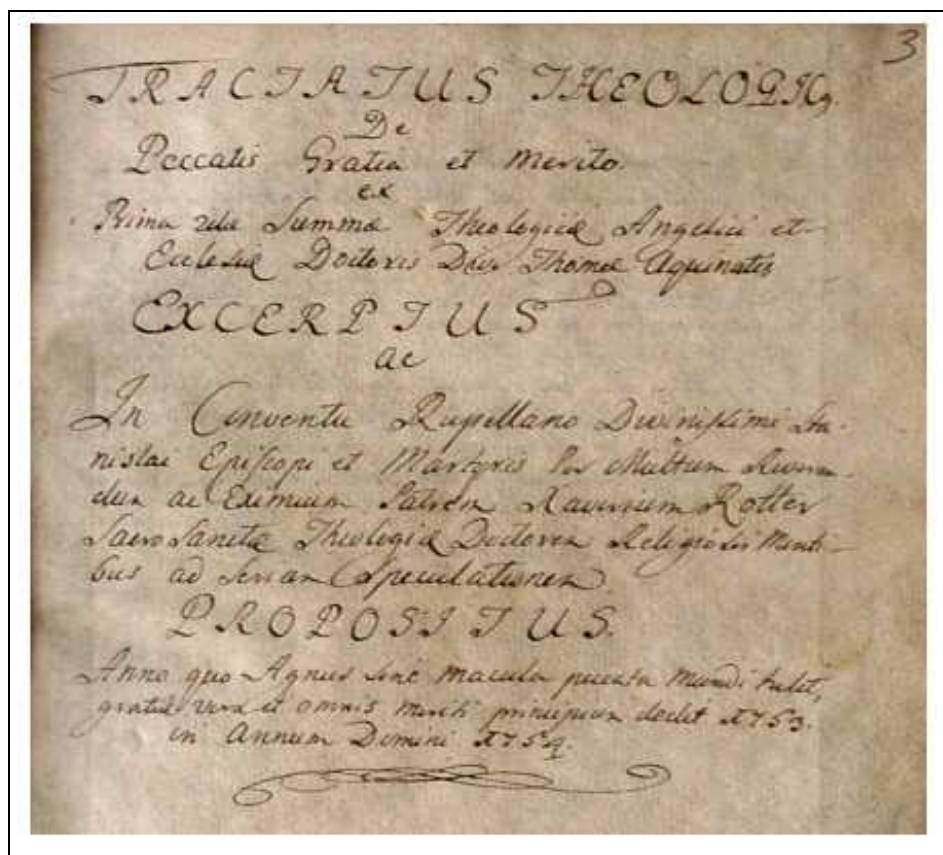 3
TRACTATUS THEOLOGICUS
De
Peccatis Gratia et Merito.
ex
Prima 2dæ Summæ Theologicæ Angelici et
Ecclesiæ Doctoris Divi Thomæ Aquinatis
EXCERPTUS
ac
In Conventu Rupellano Divinissimi Sta-
nislai Episcopi et Martyris Per Multum Reveren-
dum ac Eximium Patrem Xaverium Rotter
Sacro Sanctæ Theologiæ Doctorem Religiosis Menti-
bus ad Seriam Speculationem
PROPOSITUS.
Anno quo Agnus sine macula peccata mundi tulit,
gratiæ vera et omnis meriti principium dedit 1753.
in Annum Domini 1754.